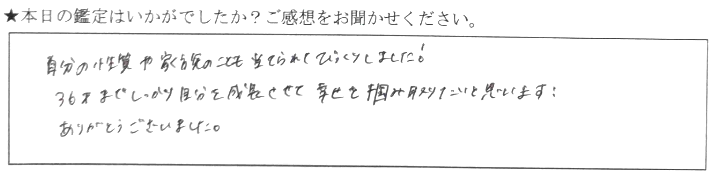 ★本日の鑑定はいかがでしたか？ご感想をお聞かせください。
自分の性質や家族のことも当てられてびっくりしました！
36才までしっかり自分を成長させて幸せを掴み取りたいと思います！
ありがとうございました。